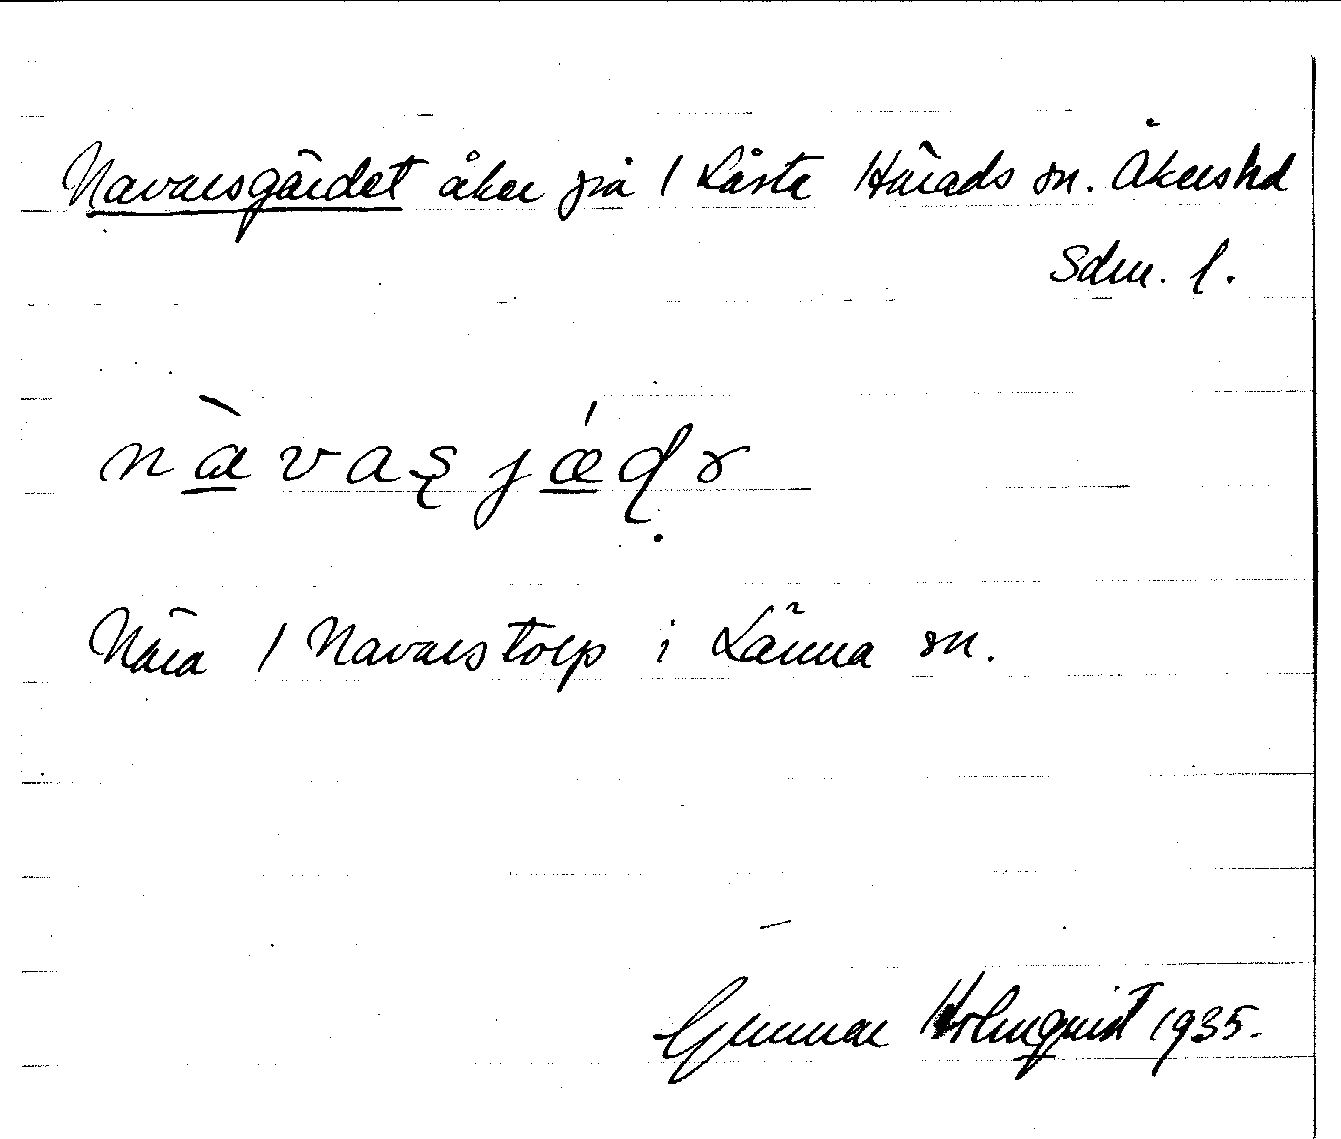 Navarsgärdet åker på / Låsta Härads sn. Åkers hd
Sdm. l.
nàvaʂjǽɖɤ
Nära / Navarstorp i Länna sn.
Gunnar Holmquist 1935.